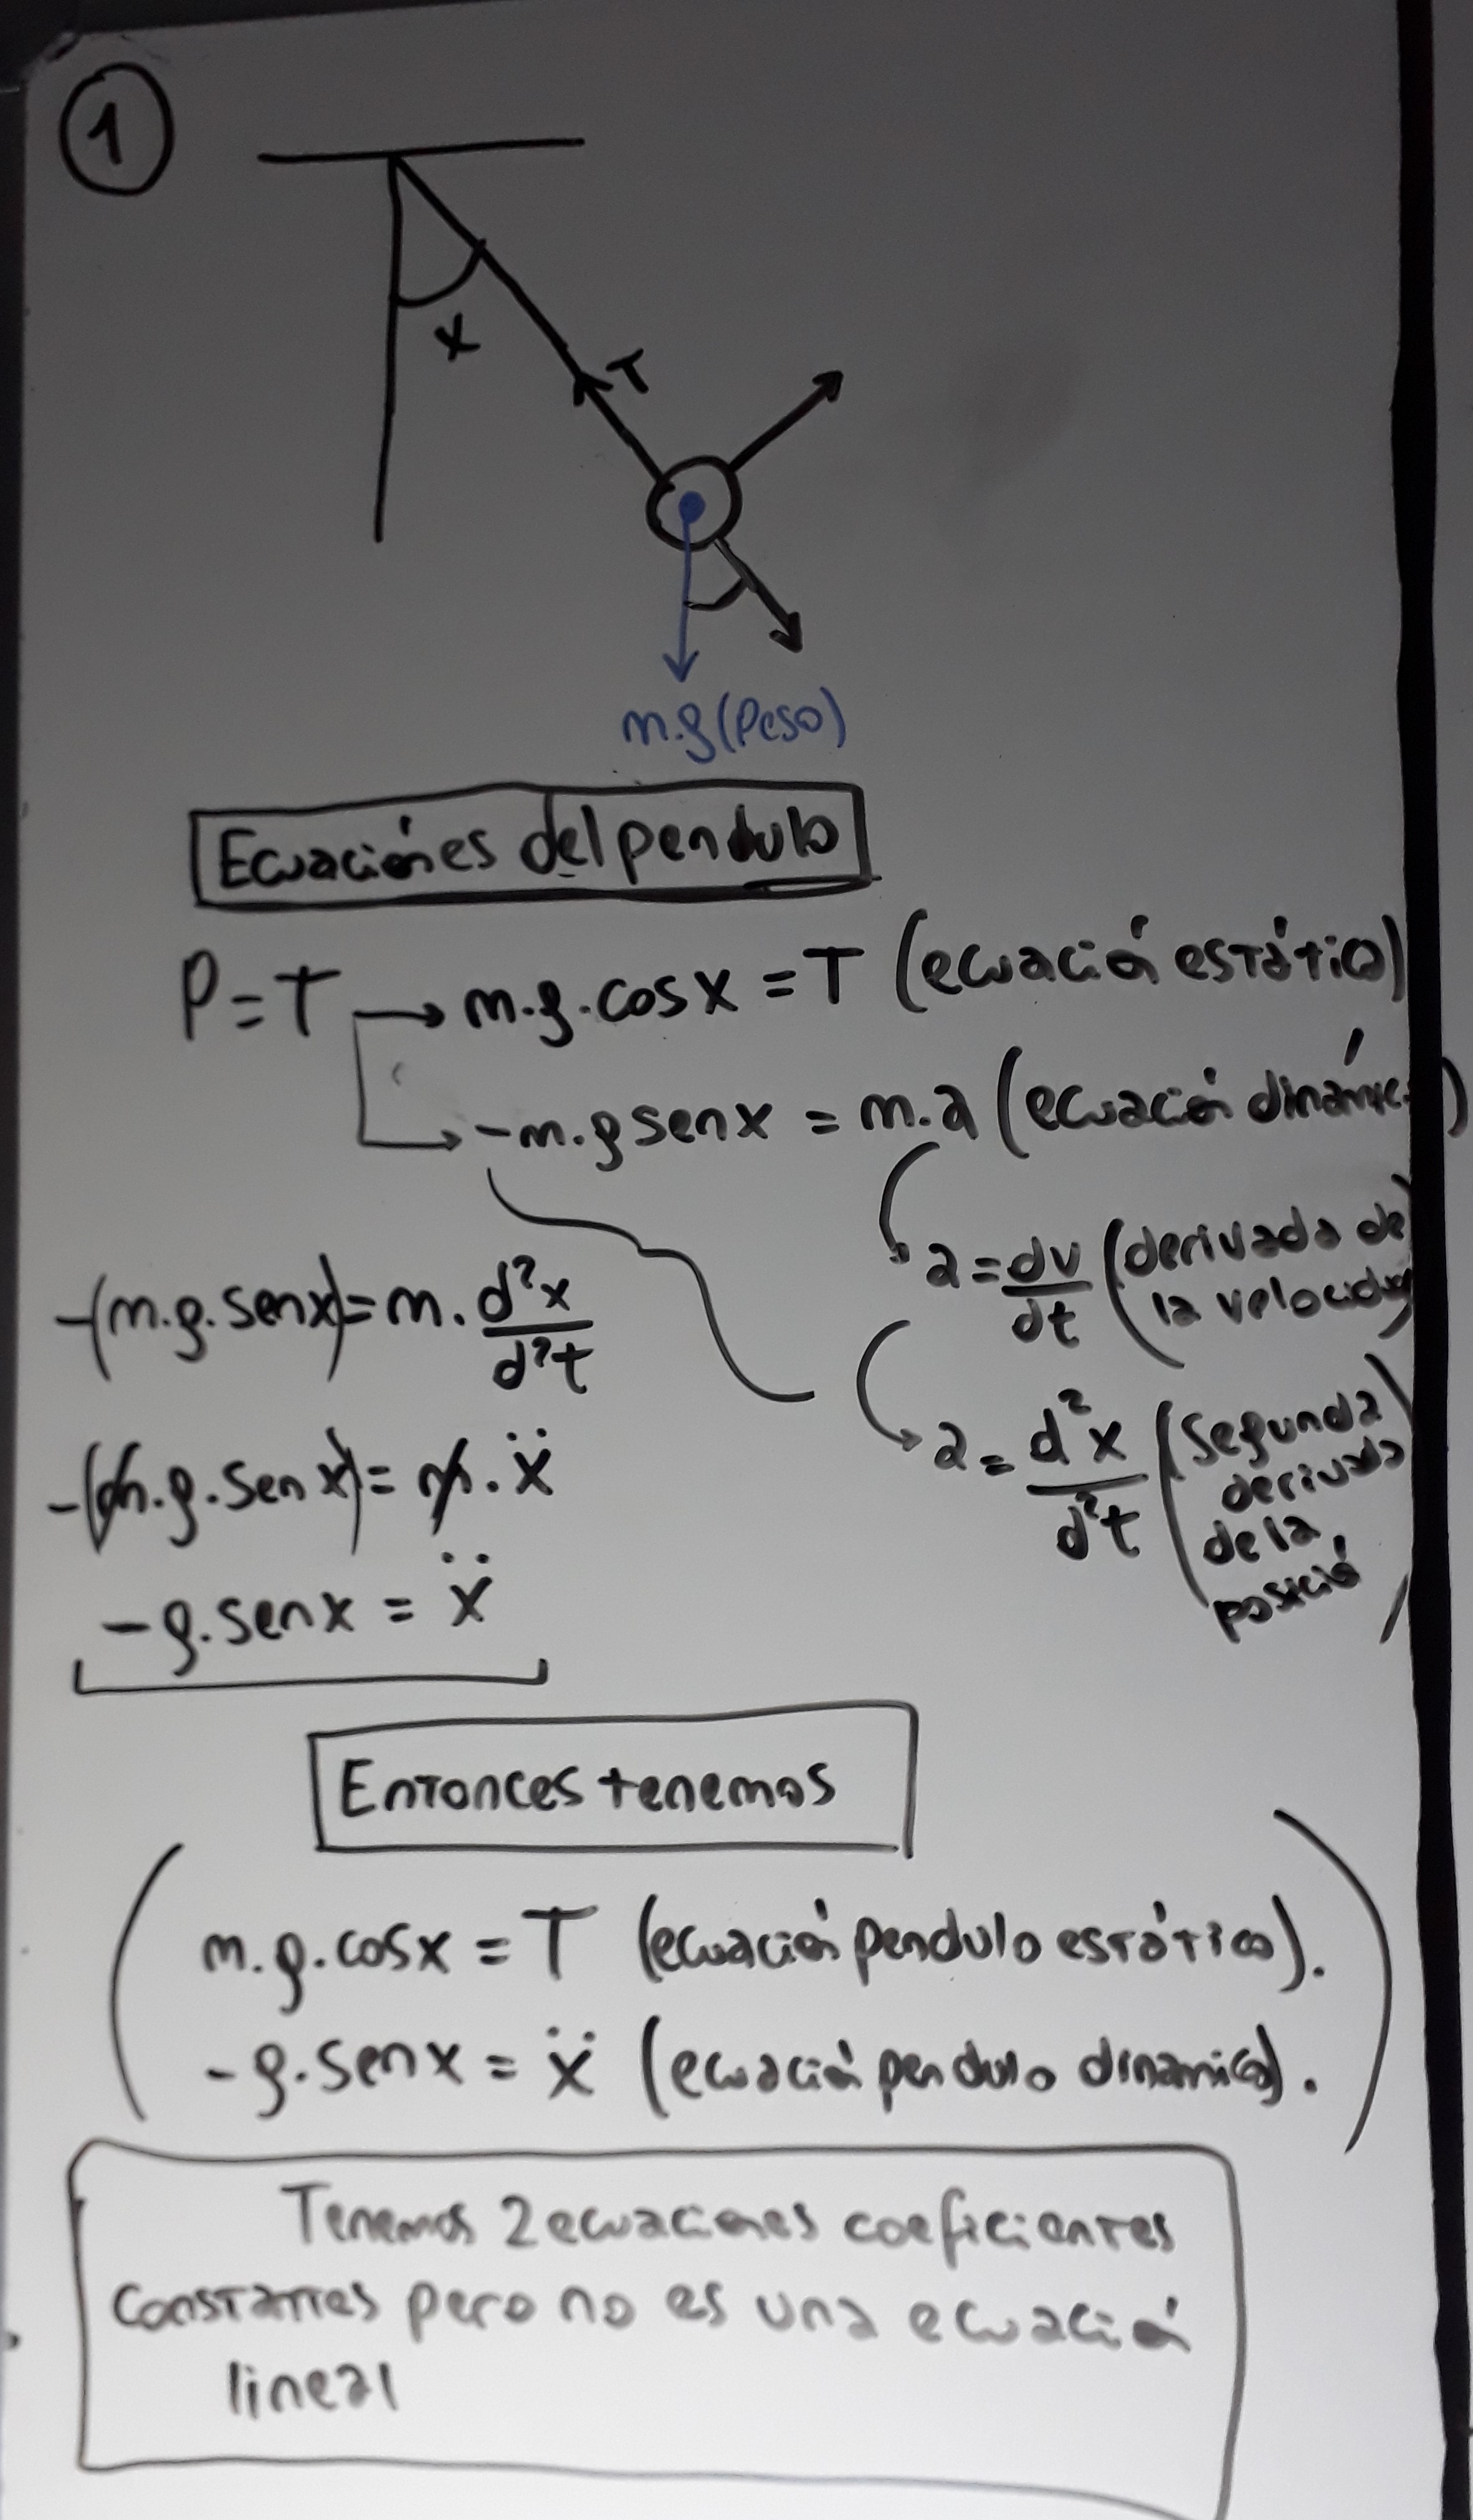 1
x
T
m.g (Peso)
Ecuaciónes del pendulo
P = T → m.g.cosx = T (ecuación estático)
→ -m.g senx = m.a (ecuación dinámic
a = dv/dt (derivada de
la velocidad)
-(m.g.senx) = m. d²x/d²t
a = d²x/d²t (segunda
derivada
de la
posición)
-(m.g.senx) = m.ẍ
-g.senx = ẍ
Entonces tenemos
m.g.cosx = T (ecuación pendulo estático).
-g.senx = ẍ (ecuación pendulo dinamico).
Tenemos 2 ecuaciones coeficientes
constantes pero no es una ecuación
lineal